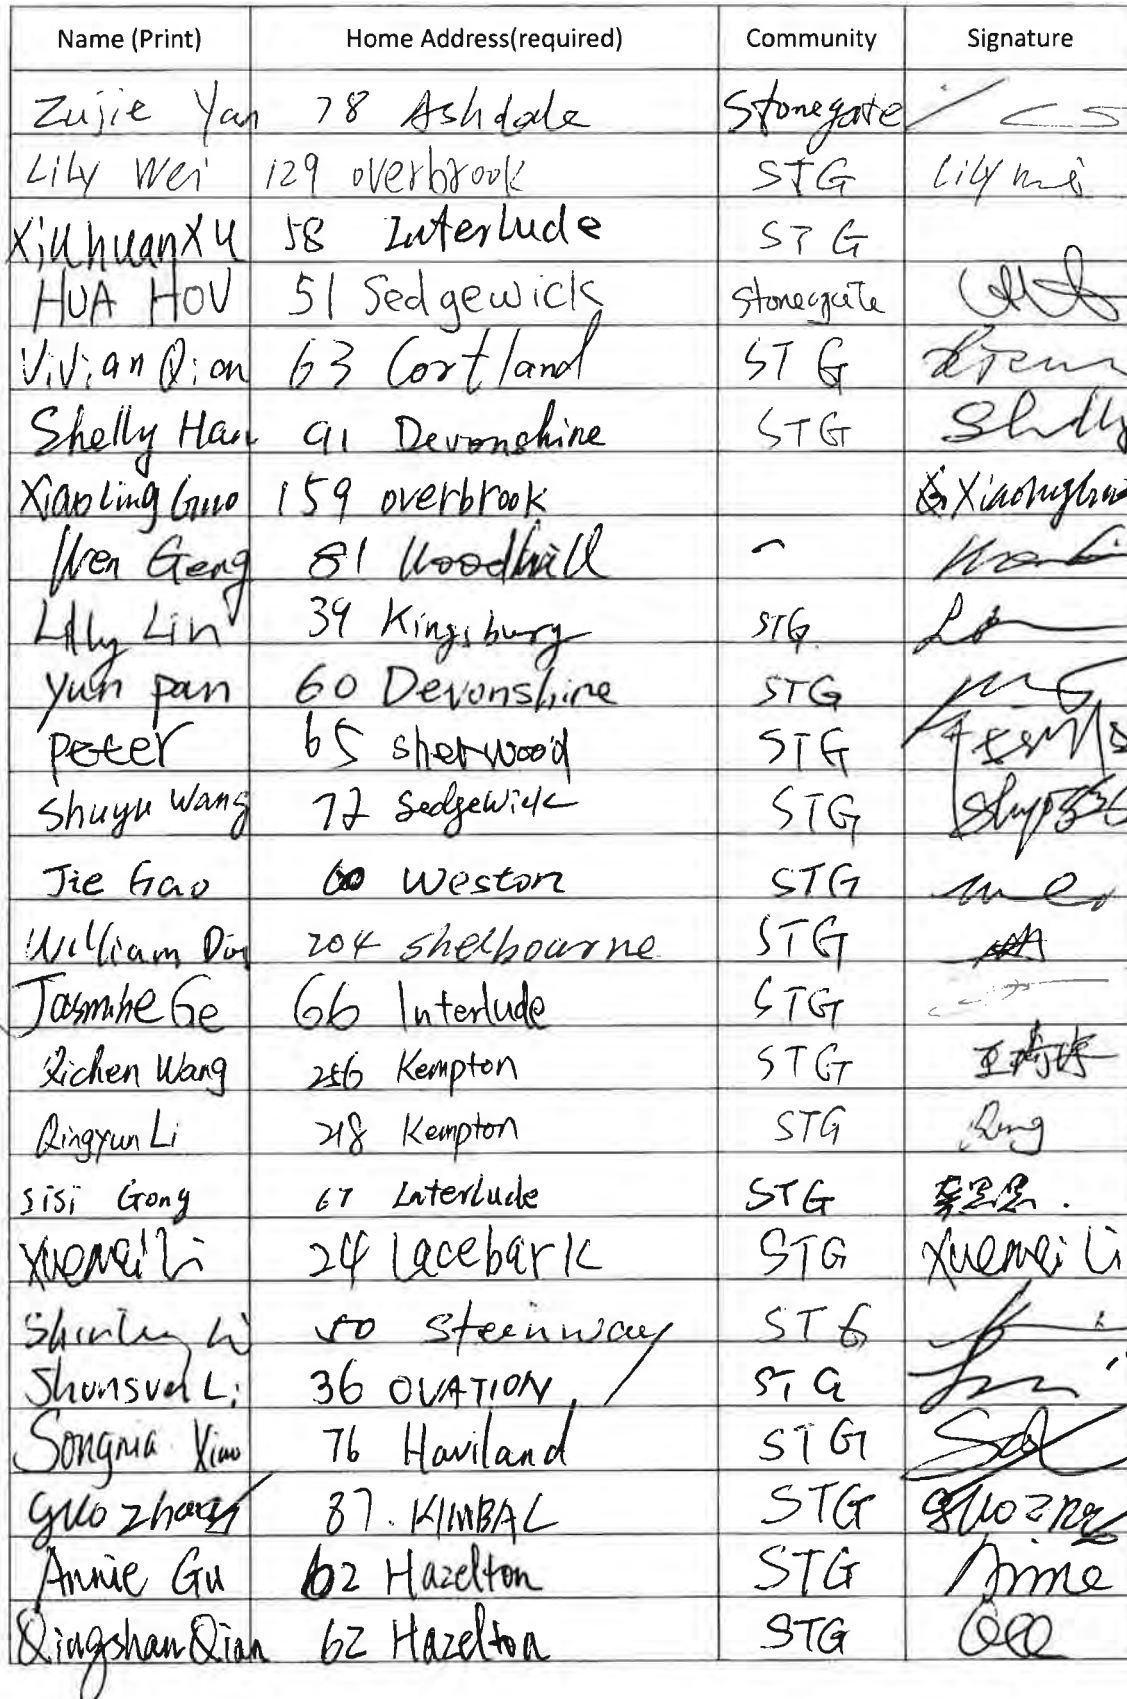 Name (Print) Home Address(required) Community Signature
Zujie Yan 78 Ashdale Stonegate
Lily Wei 129 overbrook STG Lily Wei
Xiuhuan Xu 58 Interlude STG
HUA HOU 51 Sedgewick Stonegate
Vivian Qian 63 Cortland STG
Shelly Han 91 Devonshine STG Shelly
Xiaoling Guo 159 overbrook
Wen Geng 81 Woodhill
Lilly Lin 39 Kingsbury STG
Yun pan 60 Devonshire STG
peter 65 sherwood STG
Shuyu Wang 72 Sedgewick STG
Jie Gao 60 Weston STG
William 204 shelbourne STG
Jasmine Ge 66 Interlude STG
Qichen Wang 256 Kempton STG
Qingyun Li 218 Kempton STG Qing
sisi Gong 67 Interlude STG 龚思思.
Xuemei Li 24 lacebark STG Xuemei Li
Shirley Li 50 Steinway STG
Li 36 OVATION STG
Xiao 76 Haviland STG
guo zhang 87. KIMBAL STG
Annie Gu 62 Hazelton STG Annie
Qingshan Qian 62 Hazelton STG